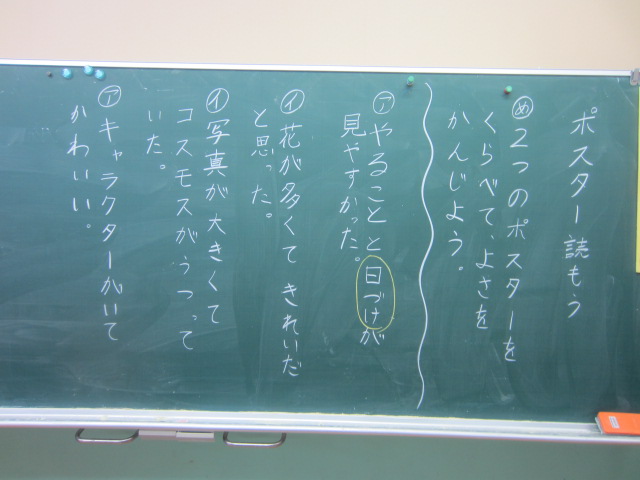 ポスター読もう
め２つのポスターを
くらべて、よさを
かんじよう。
アやることと日づけが
見やすかった。
イ花が多くてきれいだ
と思った。
イ写真が大きくて
コスモスがうつって
いた。
アキャラクターがいて
かわいい。